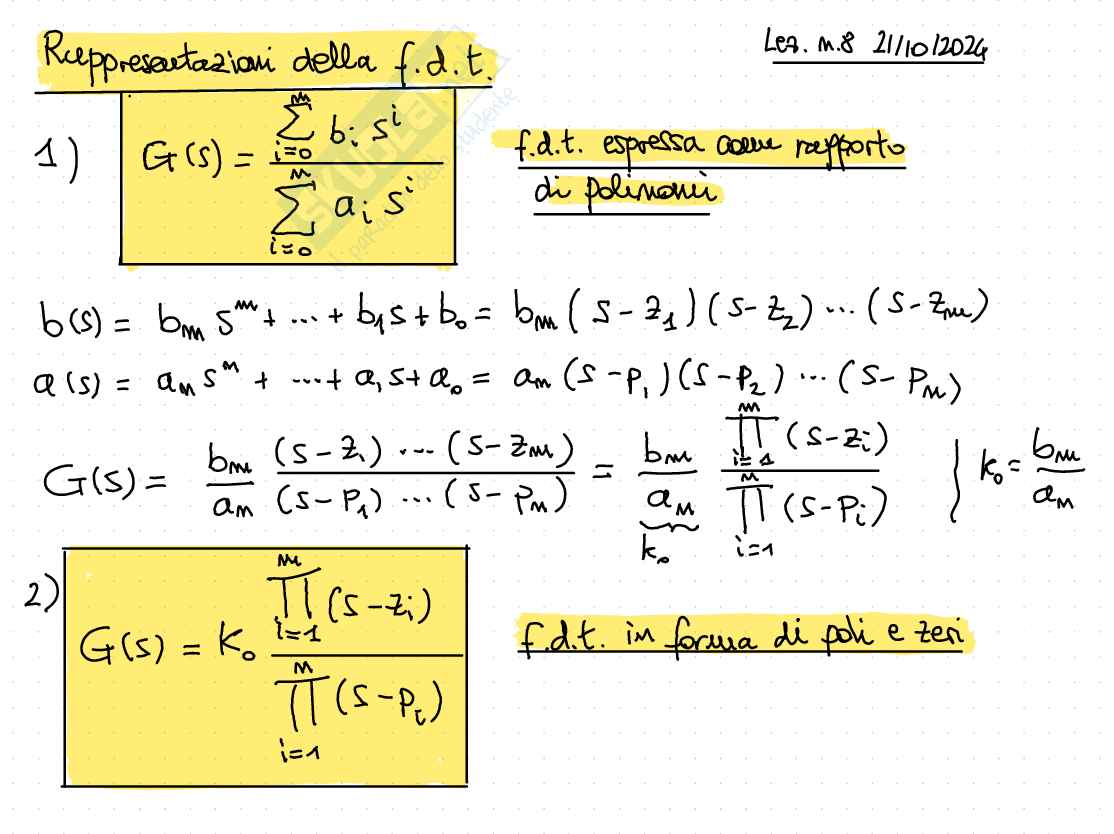 Rappresentazioni della f.d.t.
Lez. n.8 21/10/2024
1) G(s) = \frac{\sum_{i=0}^{m} b_i s^i}{\sum_{i=0}^{n} a_i s^i}
f.d.t. espressa come rapporto
di polinomi
b(s) = b_m s^m + ... + b_1 s + b_0 = b_m (s - z_1)(s - z_2) ... (s - z_m)
a(s) = a_n s^n + ... + a_1 s + a_0 = a_n (s - p_1)(s - p_2) ... (s - p_n)
G(s) = \frac{b_m}{a_n} \frac{(s - z_1) ... (s - z_m)}{(s - p_1) ... (s - p_n)} = \underbrace{\frac{b_m}{a_n}}_{k_0} \frac{\prod_{i=1}^{m} (s - z_i)}{\prod_{i=1}^{n} (s - p_i)} } k_0 = \frac{b_m}{a_n}
2) G(s) = K_0 \frac{\prod_{i=1}^{m} (s - z_i)}{\prod_{i=1}^{n} (s - p_i)}
f.d.t. in forma di poli e zeri